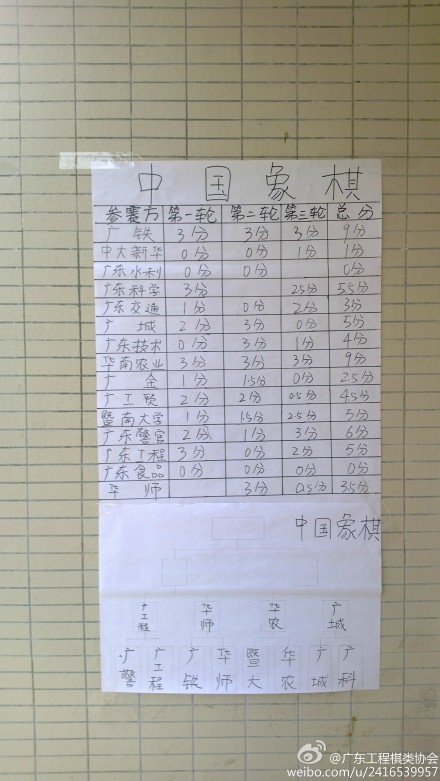 中国象棋
参赛方 第一轮 第二轮 第三轮 总分
广铁 3分 3分 3分 9分
中大新华 0分 0分 1分 1分
广东水利 0分 0分 0分
广东科学 3分 2.5分 5.5分
广东交通 1分 0分 2分 3分
广城 2分 3分 0分 5分
广东技术 0分 3分 1分 4分
华南农业 3分 3分 3分 9分
广金 1分 1.5分 0分 2.5分
广工贸 2分 2分 0.5分 4.5分
暨南大学 1分 1.5分 2.5分 5分
广东警官 2分 1分 3分 6分
广东工程 3分 0分 2分 5分
广东食品 0分 0分 0分 0分
华师 3分 0.5分 3.5分
中国象棋
广工程 华师 华农 广城
广警 广工程 广铁 华师 暨大 华农 广城 广科
@广东工程棋类协会
weibo.com/u/2416539957